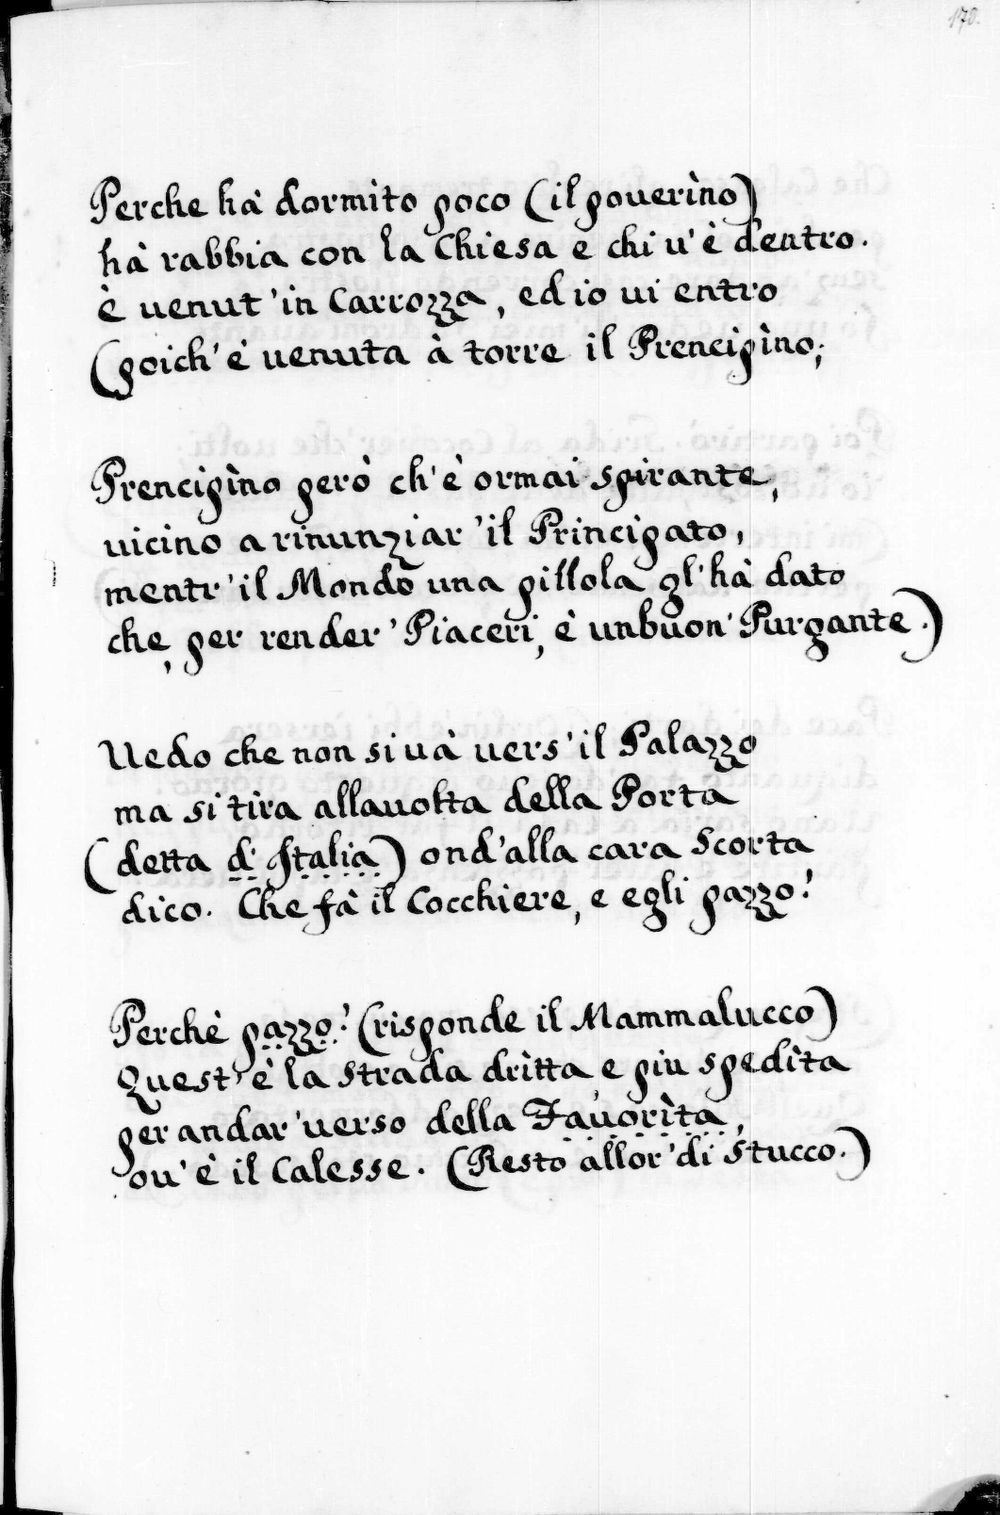 170.
Perche hà dormìto poco (il pouerìno)
hà rabbia con la Chiesa e chi u'è dentro.
è uenut'in Carrozza, ed io ui entro
(poich'è uenuta à torre il Prencipìno;
Prencipìno però ch'è ormai spirante,
uicino a rinunziar'il Principato,
mentr'il Mondo una pillola gl'hà dato
che, per render'Piaceri, è un buon'Purgante.)
Uedo che non si uà uers'il Palazzo
ma si tira allauolta della Porta
(detta d'Italia) ond'alla cara Scorta
dico. Che fà il Cocchiere, e egli pazzo?
Perchè pazzo? (risponde il Mammalucco)
Quest'è la strada drìtta e piu spedìta
per andar'uerso della Fauorìta,
ou'è il Calesse. (Resto allor'di stucco.)